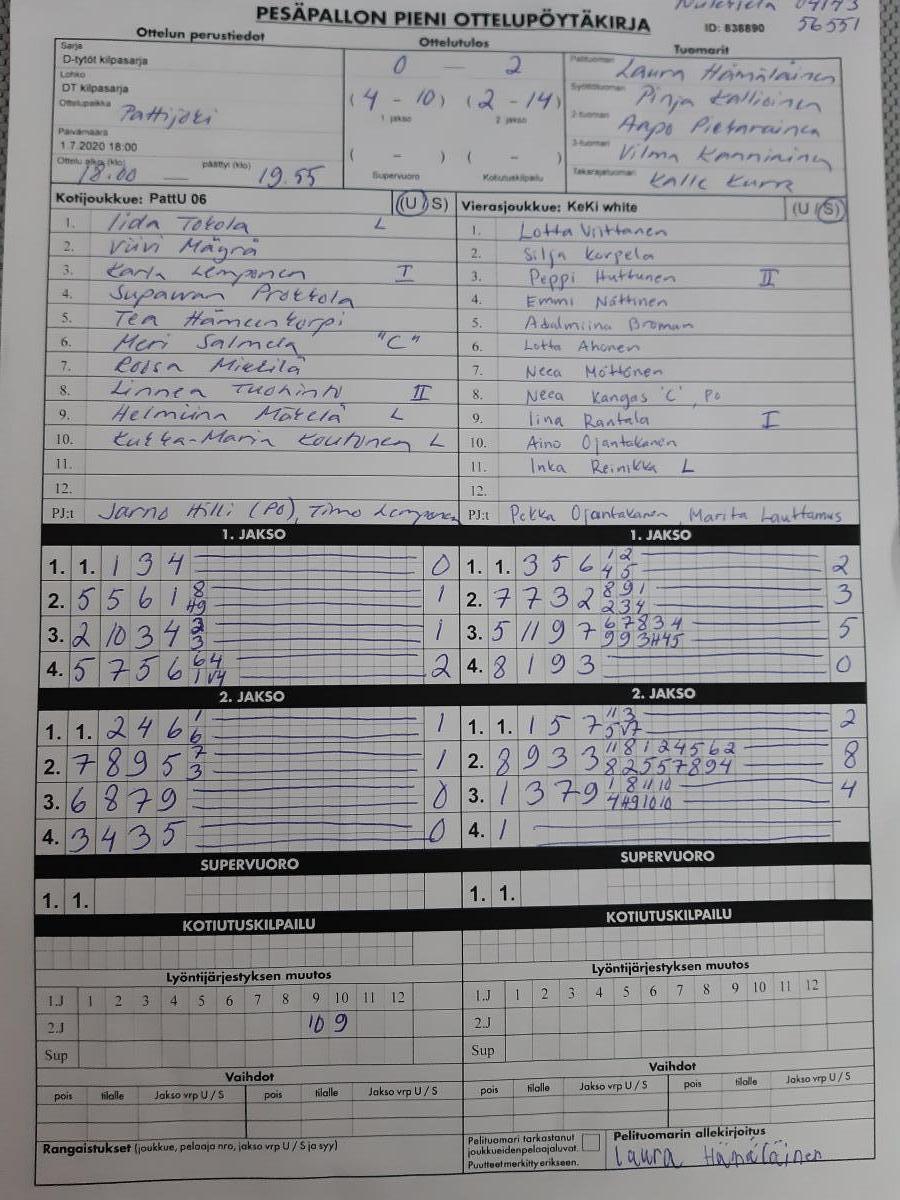 PESÄPALLON PIENI OTTELUPÖYTÄKIRJA
ID: 838890
56551
Ottelun perustiedot
Ottelutulos
Tuomarit
Sarja
D-tytöt kilpasarja
Lohko
DT kilpasarja
Ottelupaikka
Pattijoki
Päivämäärä
1.7.2020 18:00
Ottelu alkoi (klo)
päättyi (klo)
18.00 — 19.55
0 — 2
(4 - 10) (2 - 14)
1 jakso 2 jakso
( - ) ( - )
Supervuoro Kotiutuskilpailu
Pelituomari Laura Hämäläinen
Syöttötuomari Pinja Kallioinen
2-tuomari Aapo Pietarainen
3-tuomari Vilma Kanniainen
Takarajatuomari Kalle Kurra
Kotijoukkue: PattU 06 (U/S)
1. Iida Tokola L
2. Viivi Mäyrä
3. Karla Lemponen I
4. Supawan Prottola
5. Tea Hämeenkorpi
6. Meri Salmela "C"
7. Roosa Mikkilä
8. Linnea Tuohinto II
9. Helmiina Mäkelä L
10. Kukka-Maria Koutonen L
11.
12.
PJ:t Jarno Hilli (PO), Timo Lemponen
Vierasjoukkue: KeKi white (U/S)
1. Lotta Viittanen
2. Silja Korpela
3. Peppi Huttunen II
4. Emmi Nättinen
5. Adalmiina Broman
6. Lotta Ahonen
7. Neea Möttönen
8. Neea Kangas 'C', PO
9. Iina Rantala I
10. Aino Ojantakanen
11. Inka Reinikka L
12.
PJ:t Pekka Ojantakanen, Marita Lauttamus
1. JAKSO
1. 1. 1 3 4 0
2. 5 5 6 1 8 49 1
3. 2 10 3 4 3 3 1
4. 5 7 5 6 64 1V4 2
1. JAKSO
1. 1. 3 5 6 12 45 2
2. 7 7 3 2 891 234 3
3. 5 11 9 7 67834 993H45 5
4. 8 1 9 3 0
2. JAKSO
1. 1. 2 4 6 1 6 1
2. 7 8 9 5 7 3 1
3. 6 8 7 9 0
4. 3 4 3 5 0
2. JAKSO
1. 1. 1 5 7 11 3 5V7 2
2. 8 9 3 3 11 8 1 2 4 5 6 2 8 2 5 5 7 8 9 4 8
3. 1 3 7 9 1 8 11 10 4 H9 10 10 4
4. 1
SUPERVUORO
1. 1.
SUPERVUORO
1. 1.
KOTIUTUSKILPAILU
KOTIUTUSKILPAILU
Lyöntijärjestyksen muutos
1.J 1 2 3 4 5 6 7 8 9 10 11 12
2.J 10 9
Sup
Lyöntijärjestyksen muutos
1.J 1 2 3 4 5 6 7 8 9 10 11 12
2.J
Sup
Vaihdot
pois tilalle Jakso vrp U / S pois tilalle Jakso vrp U / S
Vaihdot
pois tilalle Jakso vrp U / S pois tilalle Jakso vrp U / S
Rangaistukset (joukkue, pelaaja nro, jakso vrp U / S ja syy)
Pelituomari tarkastanut
joukkueidenpelaajaluvat.
Puutteet merkitty erikseen.
Pelituomarin allekirjoitus
Laura Hämäläinen